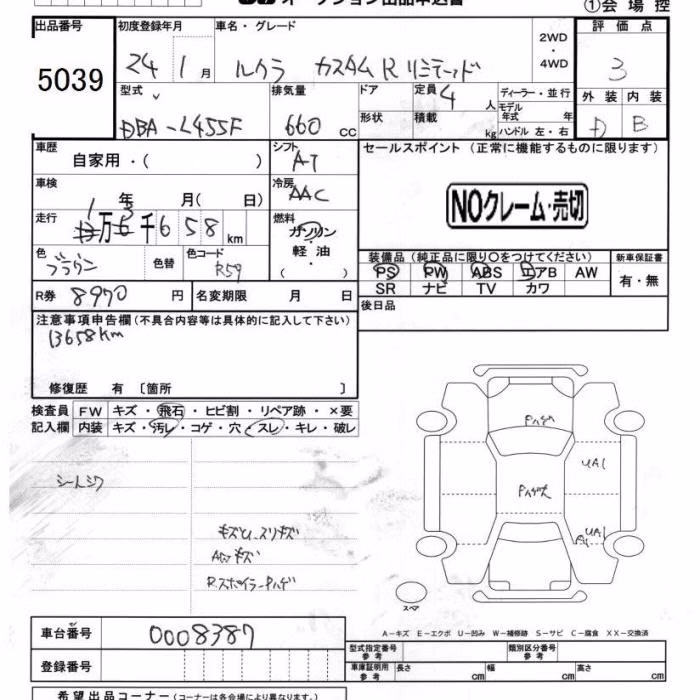 オークション出品申込書
①会場控
出品番号 初度登録年月 車名・グレード 評価点
5039 24 1月 ルクラ カスタムR リミテッド 2WD・4WD 3
型式 排気量 ドア 定員 4人 ディーラー・並行 外装 内装
DBA-L455F 660cc 形状 積載 kg モデル年式 年 ハンドル 左・右 D B
車歴 自家用・( ) シフト AT セールスポイント (正常に機能するものに限ります)
車検 年 月(日) 冷房 AAC
NOクレーム・売切
走行 万 千658km 燃料 ガソリン・軽油・( )
色 ブラウン 色替 色コード R59 装備品(純正品に限り○をつけてください) 新車保証書
PS PW ABS エアB AW 有・無
SR ナビ TV カワ
R券 8970円 名変期限 月 日 後日品
注意事項申告欄(不具合内容等は具体的に記入して下さい)
13658km
修復歴 有 〔箇所 〕
検査員 FW キズ・飛石・ヒビ割・リペア跡・×要
記入欄 内装 キズ・汚レ・コゲ・穴・スレ・キレ・破レ
シートシワ
キズ スリキズ
AWキズ
R.スポイラーPハゲ
Pハゲ
UA1
Pハゲ大
UA1
スペア
A-キズ E-エクボ U-凹み W-補修跡 S-サビ C-腐食 XX-交換済
車台番号 0008387
型式指定番号 参考 類別区分番号 参考
登録番号 車庫証明用 参考 長さ cm 幅 cm 高さ cm
希望出品コーナー(コーナーは各会場により異なります。)